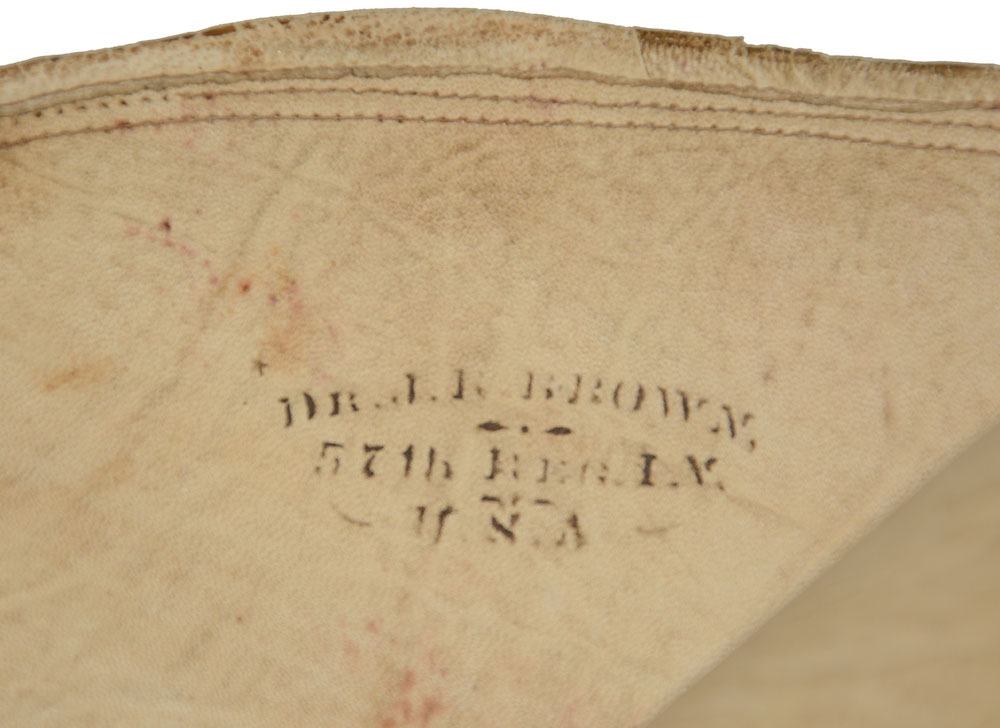 DR. J. R. BROWN,
57th REG. I.V.
U.S.A